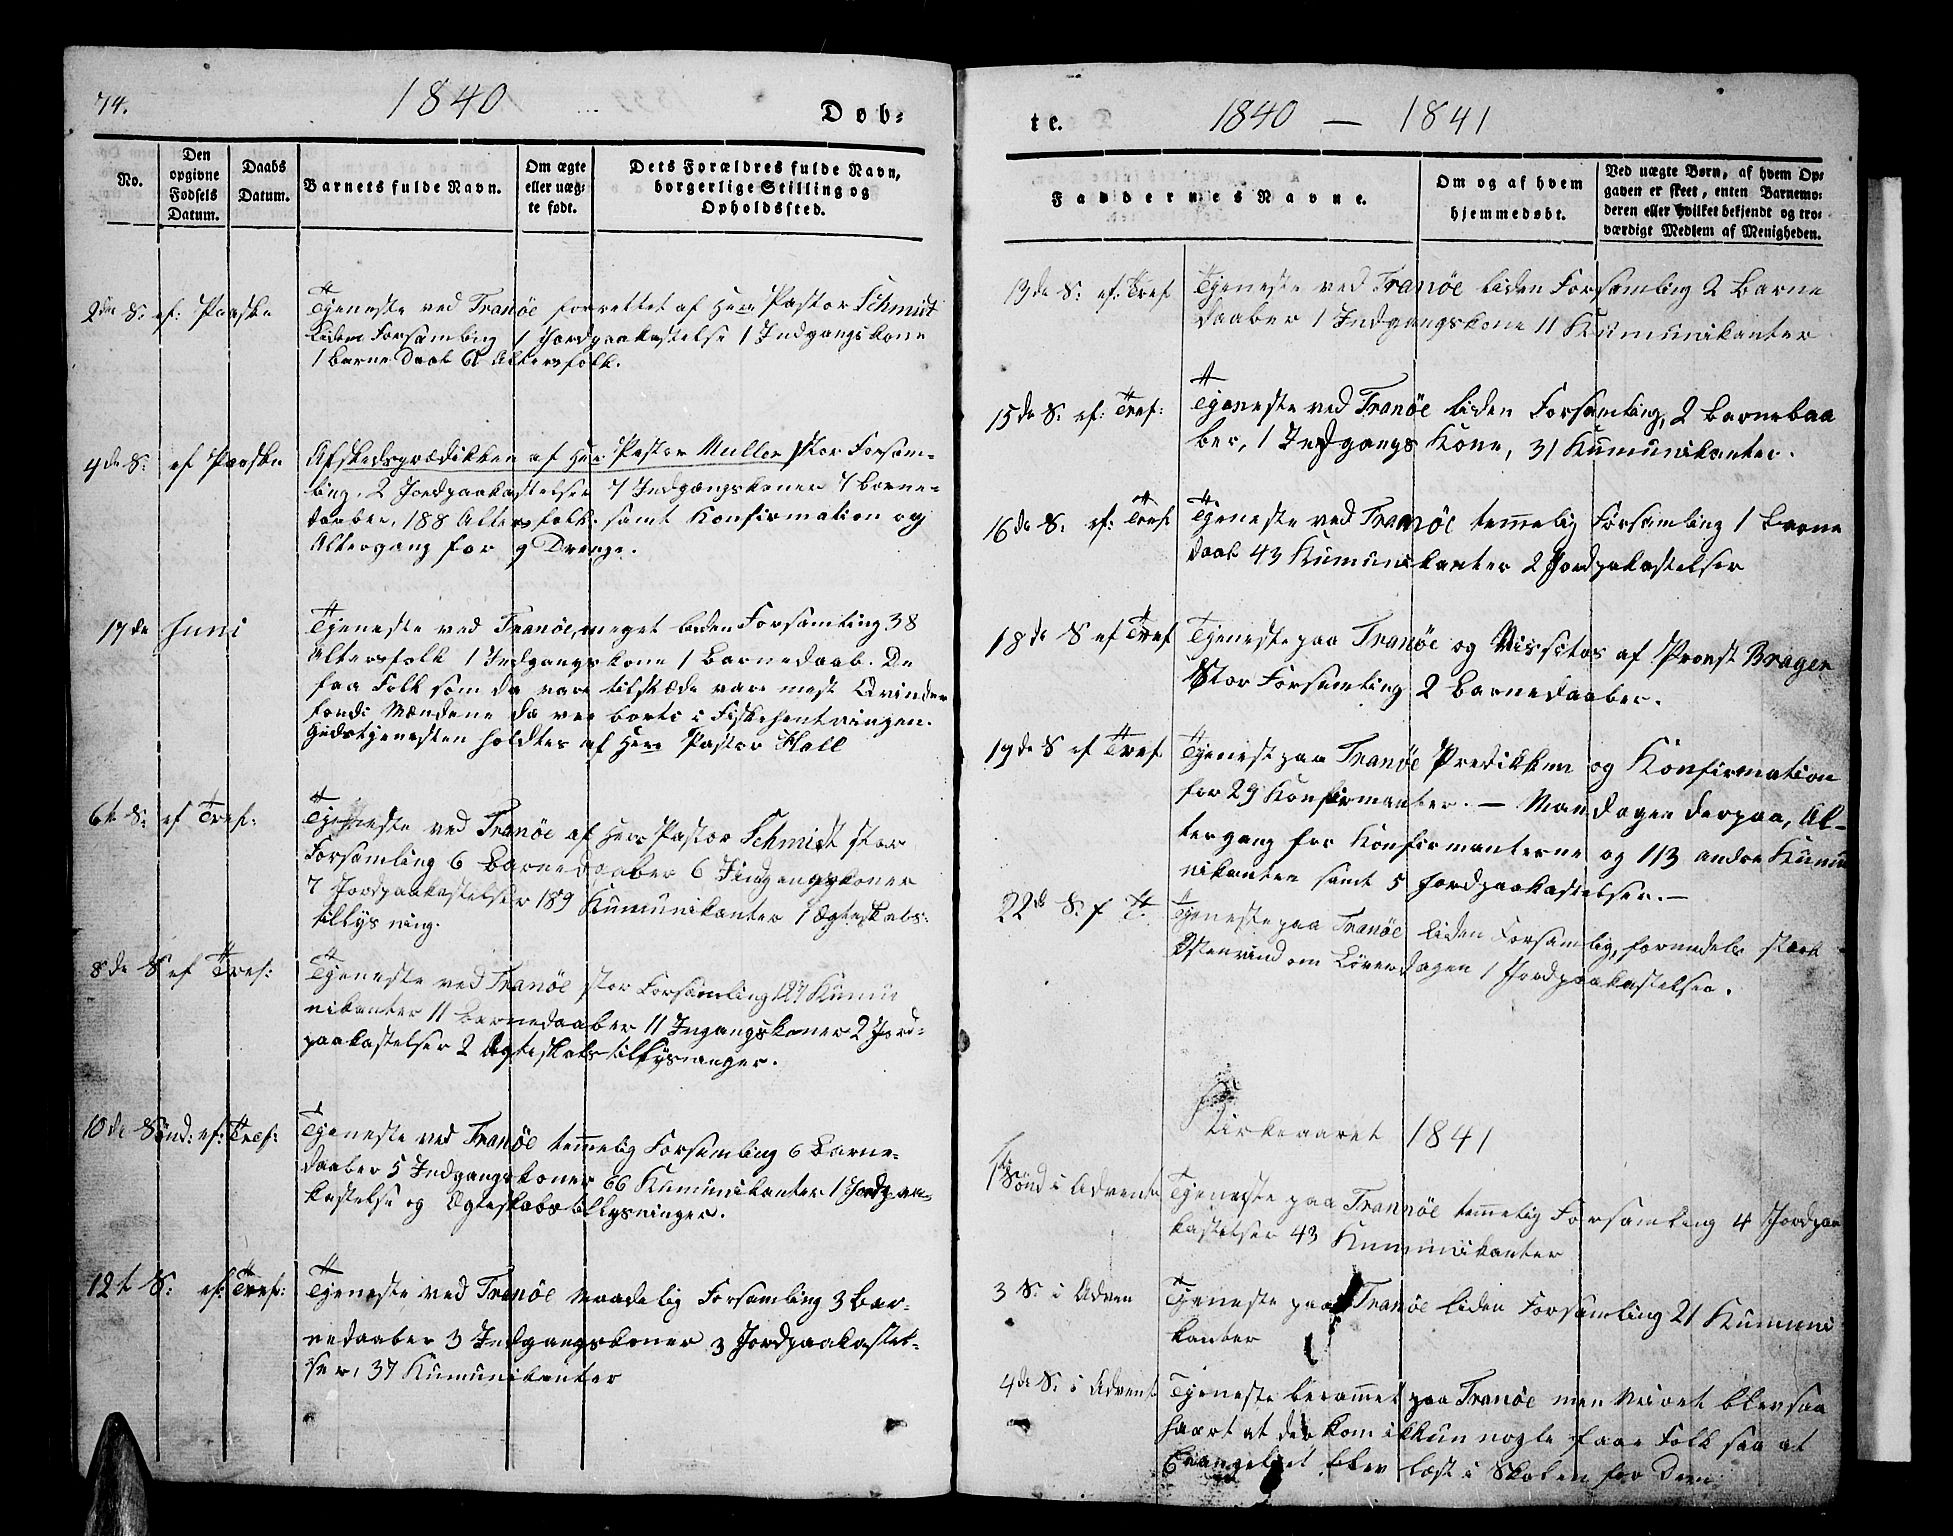 74.
1840
Døb-
No.
Den
opgivne
Fødsels
Datum.
Daabs
Datum.
Barnets fulde Navn.
Om ægte
eller uæg-
te født.
Dets Forældres fulde Navn,
borgerlige Stilling og
Opholdssted.
2den S: ef: Paaske
Tjeneste ved Tranöe forrettet af Herr Pastor Schmidt
Liden Forsamling 1 Jordpaakastelse 1 Indgangskone
1 Barne Daab 6 Altersfolk.
4de S: ef Paaske
Afskedsprædikken af Herr Pastor Muller Stor Forsam-
ling. 2 Jordpaakastelser 7 Indgangskoner 7 Barne-
daaber, 188 Altersfolk. samt Konfirmation og
Altergang for 9 Drenge.
17de Juni
Tjeneste ved Tranöe, meget liden Forsamling 38
Altersfolk 1 Indgangskone 1 Barnedaab. De
faa Folk som da vare tilstæde vare mest Qvinder
fordi Mændene da var borte i Fiskehentningen.
Gudstjenesten holdtes af Herr Pastor Hall
6te S: ef Tref:
Tjeneste ved Tranöe af Herr Pastor Schmidt stor
Forsamling 6 Barnedaaber 6 Indgangskoner
7 Jordpaakastelser 189 Kumunikanter 1 Ægteskabs-
tillysning.
8de S ef Tref:
Tjeneste ved Tranöe stor Forsamling 127 Kumu
nikanter 11 Barnedaaber 11 Ingangskoner 2 Jord-
paakastelser 2 Ægteskabstillysninger.
10de Sönd: ef: Tref:
Tjeneste ved Tranöe temmelig Forsamling 6 Barne-
daaber 5 Indgangskoner 66 Kumunikanter 1 Jordpaa-
kastelse og Ægteskabstillysninger.
12te S: ef: Tref:
Tjeneste ved Tranöe Maadelig Forsamling 3 Bar-
nedaaber 3 Indgangskoner 3 Jordpaakastel-
ser, 37 Kumunikanter
te.
1840 — 1841
Faddernes Navne.
Om og af hvem
hjemmedøbt.
Ved uægte Børn, af hvem Op-
gaven er skeet, enten Barnemo-
deren eller hvilket bekjendt og tro-
værdigt Medlem af Menigheden.
13de S: ef: Tref
Tjeneste ved Tranöe liden Forsamling 2 Barne
daaber 1 Indgangskone 11 Kumunikanter
15de S: ef: Tref:
Tjeneste ved Tranöe liden Forsamling, 2 Barnedaa
ber, 1 Indgangs Kone, 31 Kumunikanter.
16de S: ef: Tref
Tjeneste ved Tranöe temmelig Forsamling 1 Barne
daab 43 Kumunikanter 2 Jordpakastelser
18de S ef Tref
Tjeneste paa Tranöe og Vissitas af Provst Brager
Stor Forsamling 2 Barnedaaber.
19de S ef Tref
Tjenest paa Tranöe Predikken og Konfirmation
for 29 Konfirmanter. — Mandagen derpaa, Al-
tergang for Konfirmanterne og 113 andre Kumu
nikanter samt 5 Jordpaakastelser. —
22de S: f T.
Tjeneste paa Tranöe liden Forsamlig, formedels stærk
Østenvind om Löverdagen 1 Jordpaakastelse.
Kirkeaaret 1841
1ste Sönd i Advent
Tjeneste paa Trannöe temmelig Forsamling 4 Jordpaa
kastelser 43 Kumunikanter
3 S: i Adven
Tjeneste paa Tranöe liden Forsamling 21 Kumuni
kanter
4de S: i Advent
Tjeneste berammet paa Tranöe men Veiret blev saa
haart at der kom ikkun nogle faae Folk saa at
Evangeliet blev læst i Skolen for Dem